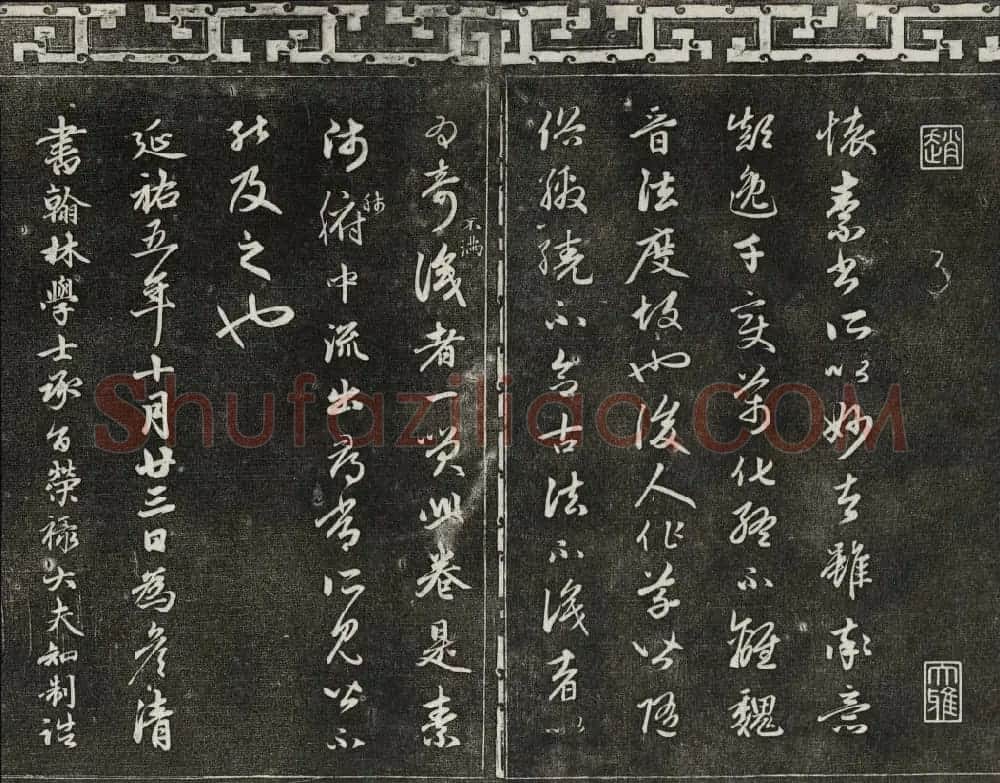 趙
大雅
懷素書所以妙者雖率意
顛逸千變萬化終不離魏
晉法度故也後人作草皆隨
俗繳繞不合古法不識者以
為奇不滿識者一笑此卷是素
師肺腑中流出尋常所見皆不
能及之也
延祐五年十月廿三日為彦清
書翰林學士承旨榮祿大夫知制誥
Shufaziliao.COM